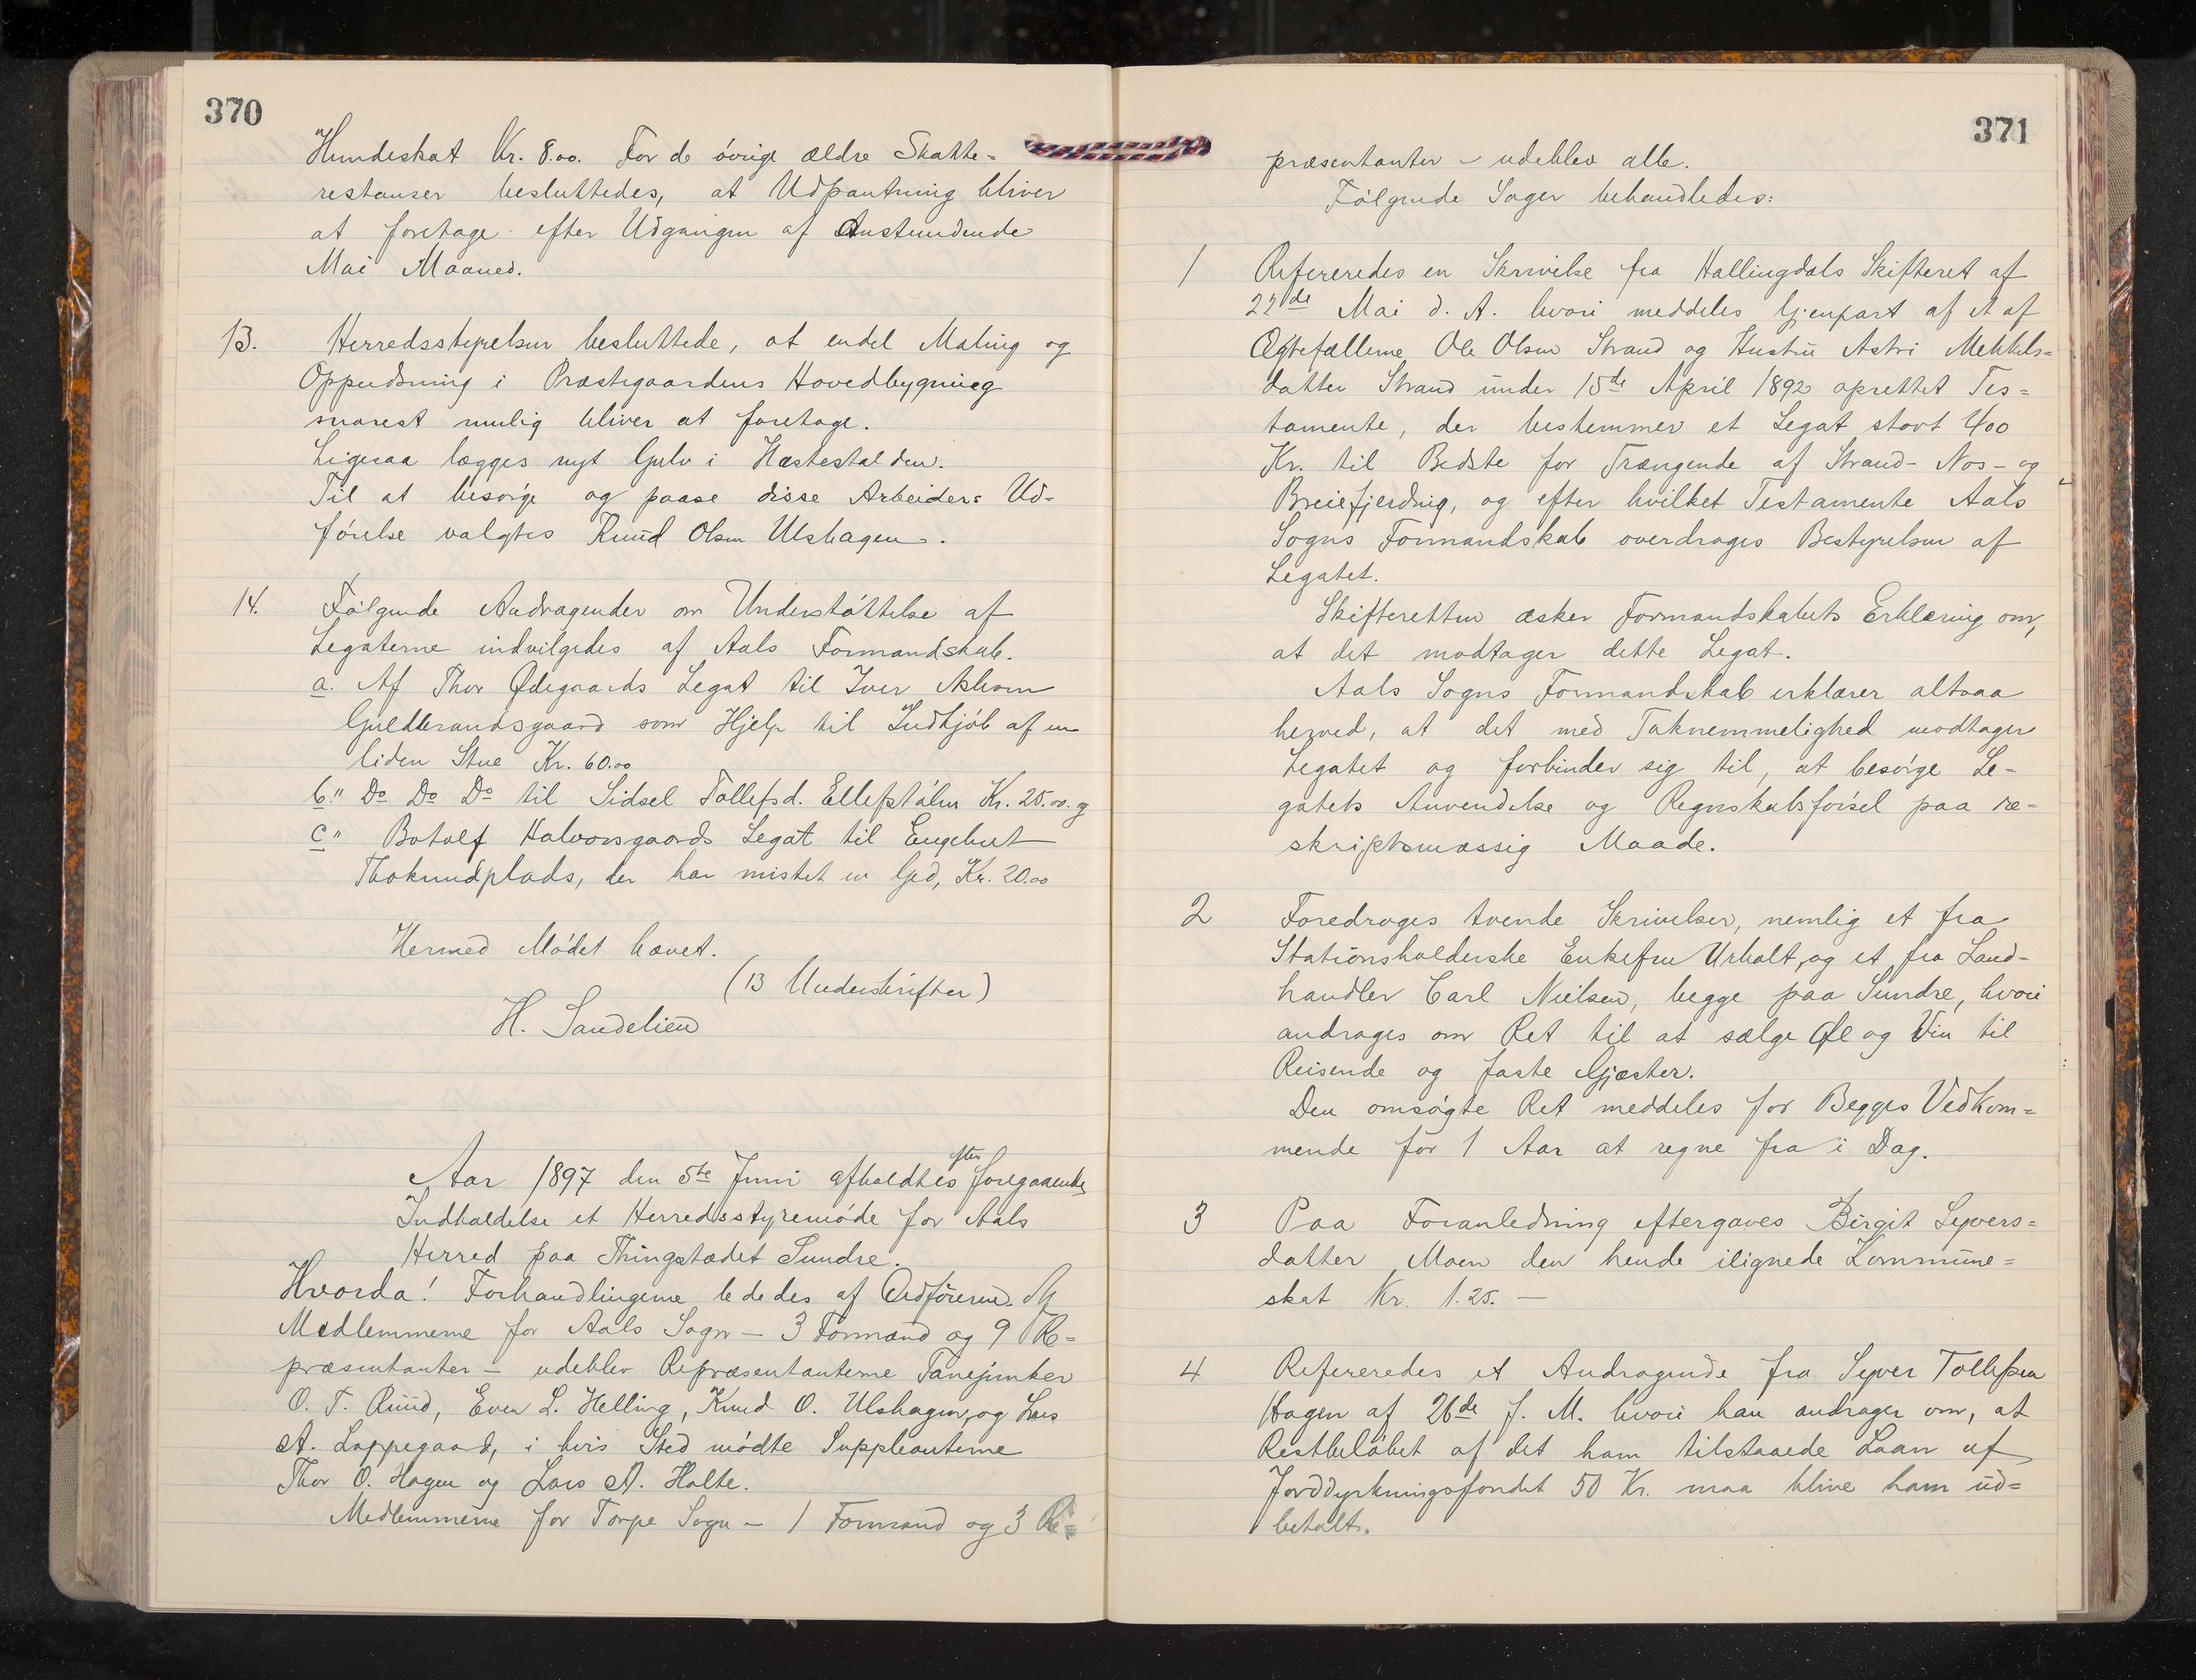 370
Hundeskat Kr. 8.00. For de övrige ældre Skatte=
restanser besluttedes, at Udpantning bliver
at foretage efter Udgangen af Anstundende
Mai Maaned.
13. Herredsstyrelsen besluttede, at endel Maling og
Oppudsning i Præstegaardens Hovedbygning
snarest mulig bliver at foretage.
Ligesaa lægges nyt Gulv i Hæstestalden.
Til at besörge og paase disse Arbeiders Ud-
förelse valgtes Knud Olsen Ulshagen.
14. Fölgende Andragender om Understöttelse af
Legaterne indvilgedes af Aals Formandskab.
a. Af Thor Ødegaards Legat til Iver Asleson
Guldbrandsgaard som Hjelp til Indkjöb af en
liden Stue Kr. 60.00
b." Do Do Do til Sidsel Tollefsd. Ellefstölen Kr. 25.00. og
c" Botolf Halvorsgaards Legat til Engebret
Thoknudplads, der har mistet en Gjed, Kr. 20.00
Hermed Mödet hævet.
(13 Underskrifter)
H. Sandelien
Aar 1897 den 5te Juni afholdtes efter foregaaende
Indkaldelse et Herredsstyremöde for Aals
Herred paa Thingstædet Sundre.
Hvorda! Forhandlingerne lededes af Ordföreren. Af
Medlemmerne for Aals Sogn — 3 Formænd og 9 Re=
præsentanter — udeblev Repræsentanterne Fanejunker
O. T. Ruud, Even L. Helling, Knud O. Ulshagen, og Lars
A. Loppegaard, i hvis Sted mödte Suppleanterne
Thor O. Hagen og Lars A. Holte.
Medlemmerne for Torpe Sogn — 1 Formand og 3 Re=
371
præsentanter — udeblev alle.
Fölgende Sager behandledes:
1 Refereredes en Skrivelse fra Hallingdals Skifteret af
22de Mai d. A. hvori meddeles Gjenpart af et af
Ægtefællerne Ole Olsen Strand og Hustru Astri Mekkels=
datter Strand under 15de April 1892 oprettet Tes=
tamente, der bestemmer et Legat stort 400
Kr. til Bedste for Trængende af Strand- Nos- og
Breiefjerding, og efter hvilket Testamente Aals
Sogns Formandskab overdrages Bestyrelsen af
Legatet.
Skifteretten æsker Formandskabets Erklæring om,
at det modtager dette Legat.
Aals Sogns Formandskab erklærer altsaa
herved, at det med Taknemmelighed modtager
Legatet og forbinder sig til, at besörge Le-
gatets Anvendelse og Regnskabsförsel paa re=
skriptsmæssig Maade.
2 Foredroges tvende Skrivelser, nemlig et fra
Stationsholderske Enkefru Urholt, og et fra Land-
handler Carl Nielsen, begge paa Sundre, hvori
andrages om Ret til at sælge Øl og Vin til
Reisende og faste Gjæster.
Den omsögte Ret meddeles for Begges Vedkom=
mende for 1 Aar at regne fra i Dag.
3 Paa Foranledning eftergaves Birgit Syvers=
datter Moen den hende ilignede Kommune=
skat Kr. 1.25. —
4 Refereredes et Andragende fra Syver Tollefsen
Hagen af 26de f. M. hvori han andrager om, at
Restbelöbet af det ham tilstaaede Laan af
Jorddyrkningsfondet 50 Kr. maa blive ham ud=
betalt.